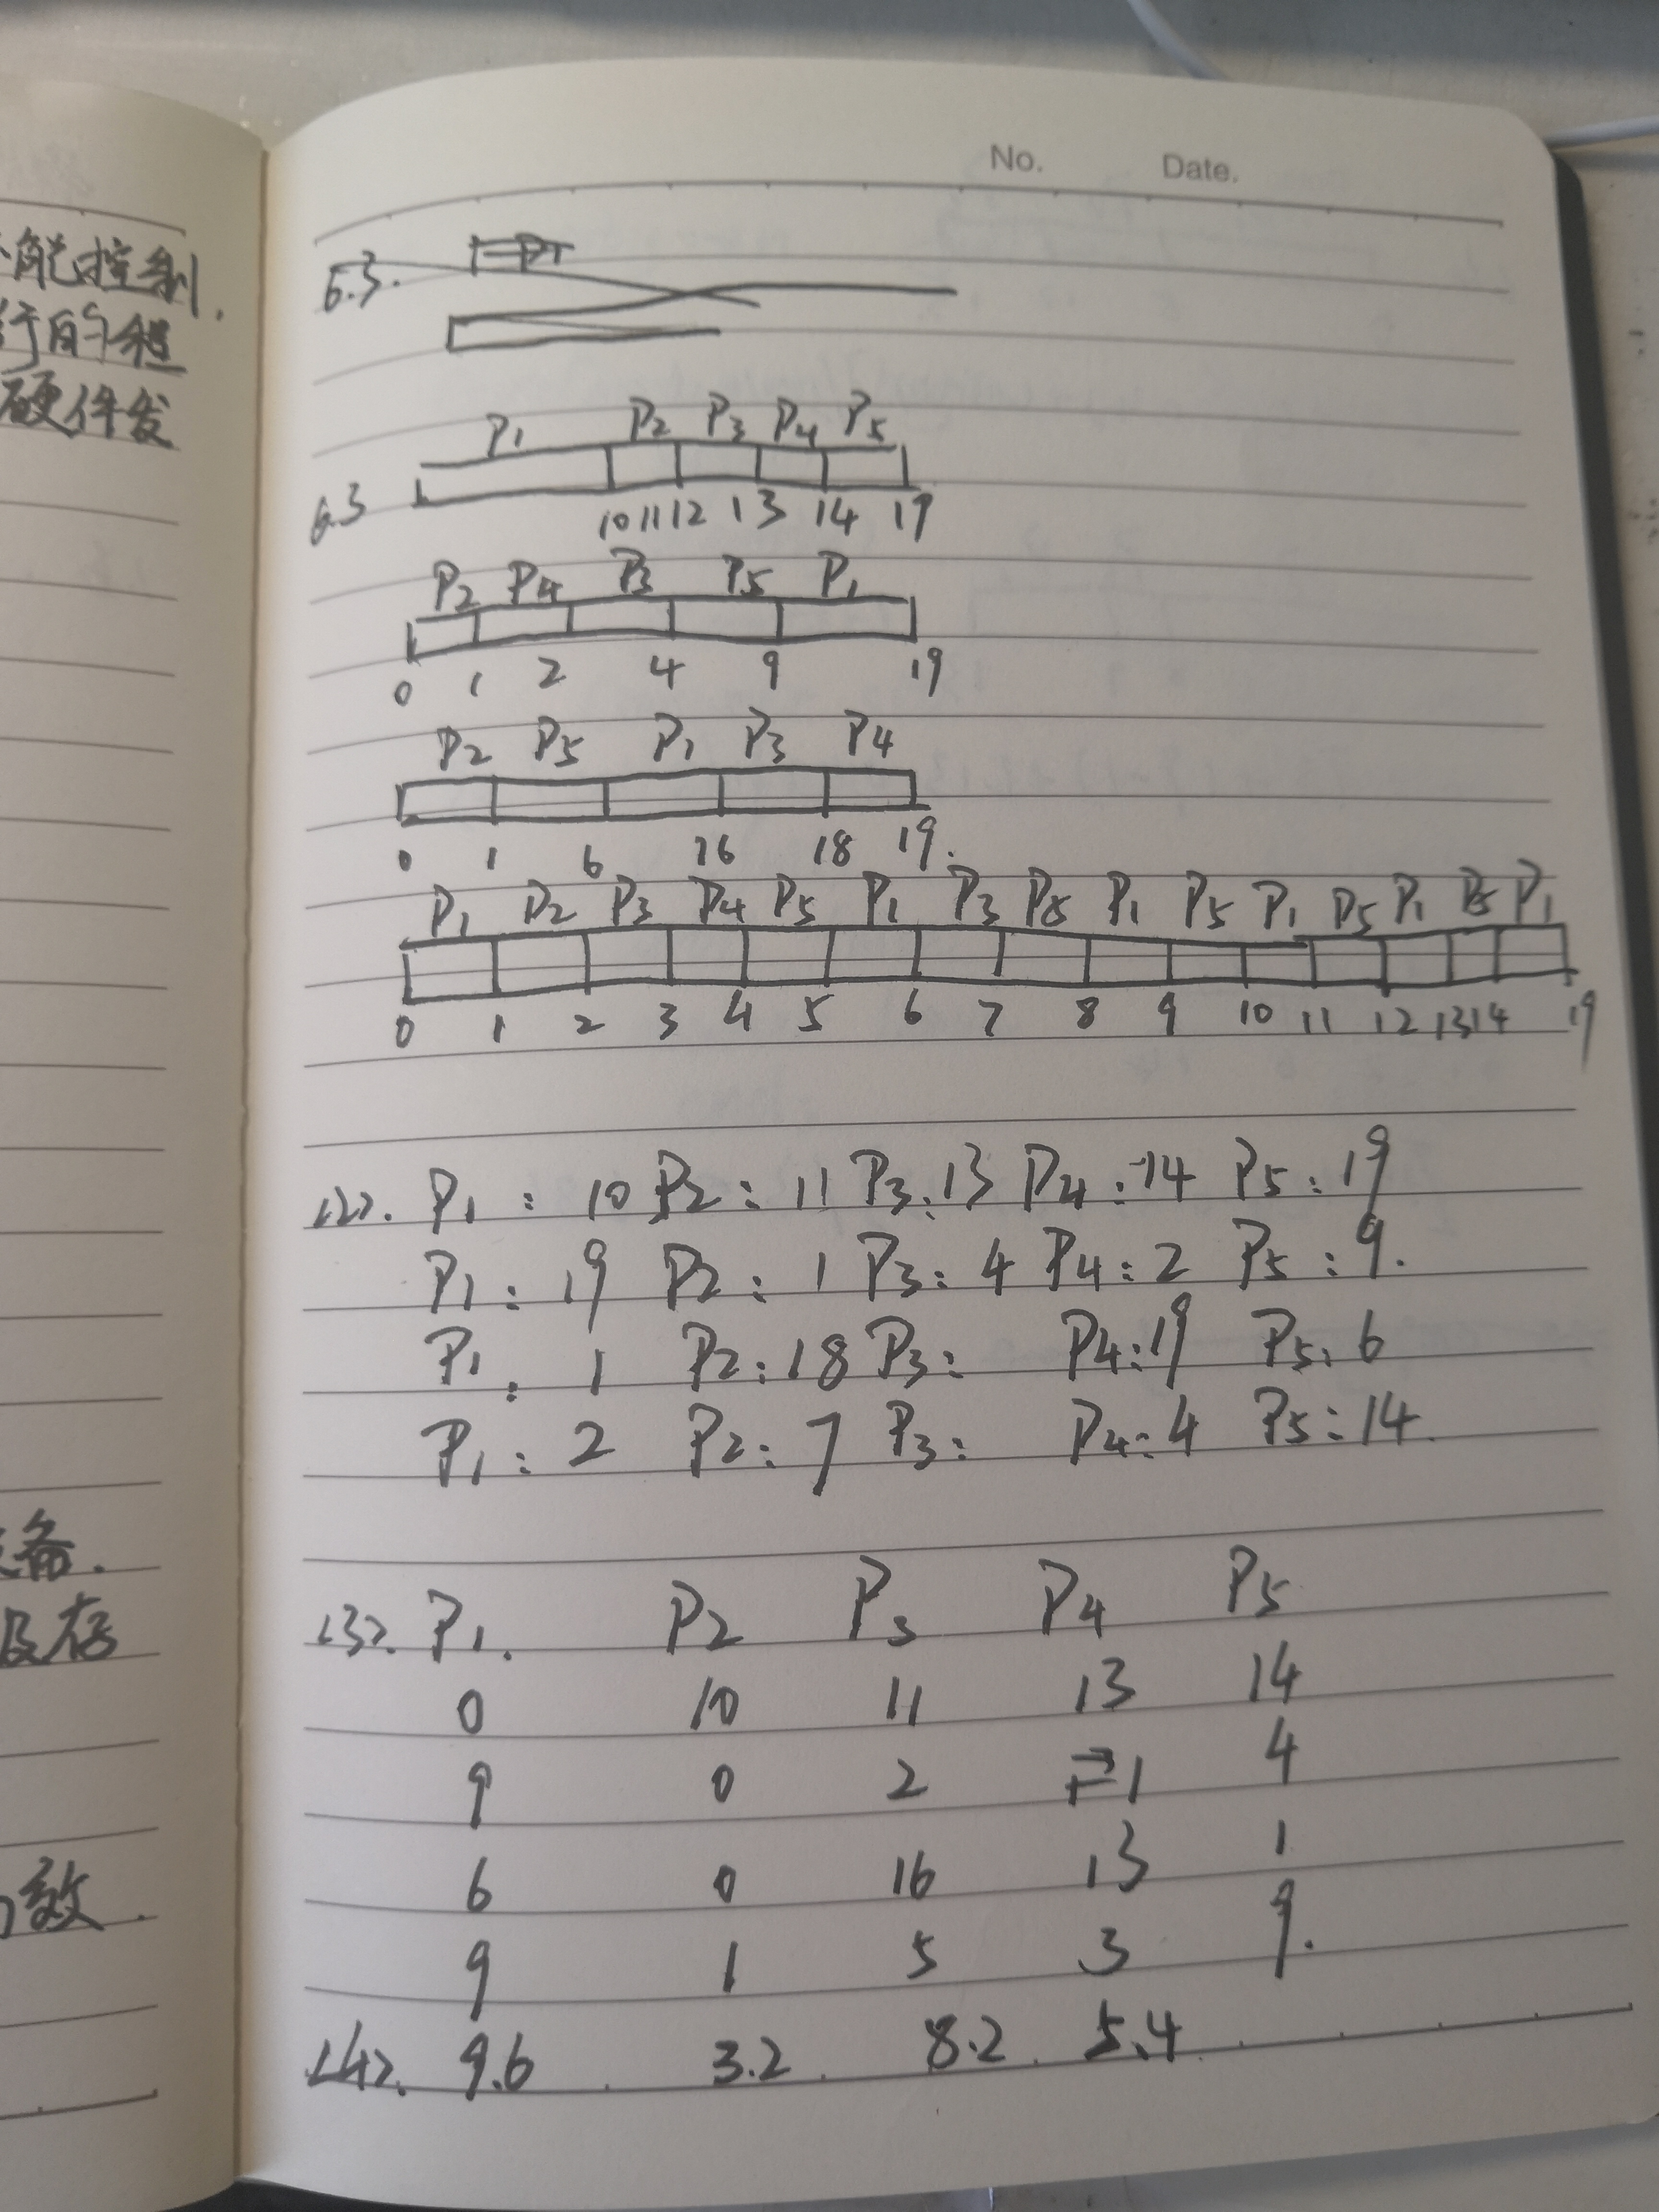 No. Date.
不能控制.
行的程
硬件发
6.3.
P1 P2 P3 P4 P5
6.3
10 11 12 13 14 19
P2 P4 P3 P5 P1
0 1 2 4 9 19
P2 P5 P1 P3 P4
0 1 6 16 18 19.
P1 P2 P3 P4 P5 P1 P3 P5 P1 P5 P1 P5 P1 P5 P1
0 1 2 3 4 5 6 7 8 9 10 11 12 13 14 19
<2>. P1: 10 P2: 11 P3: 13 P4: 14 P5: 19
P1: 19 P2: 1 P3: 4 P4: 2 P5: 9.
P1: 1 P2: 18 P3: P4: 19 P5: 6
P1: 2 P2: 7 P3: P4: 4 P5: 14.
备.
及存
<3>. P1. P2 P3 P4 P5
0 10 11 13 14
9 0 2 1 4
6 0 16 13 1
效.
9 1 5 3 9.
<4>. 9.6 3.2 8.2 5.4